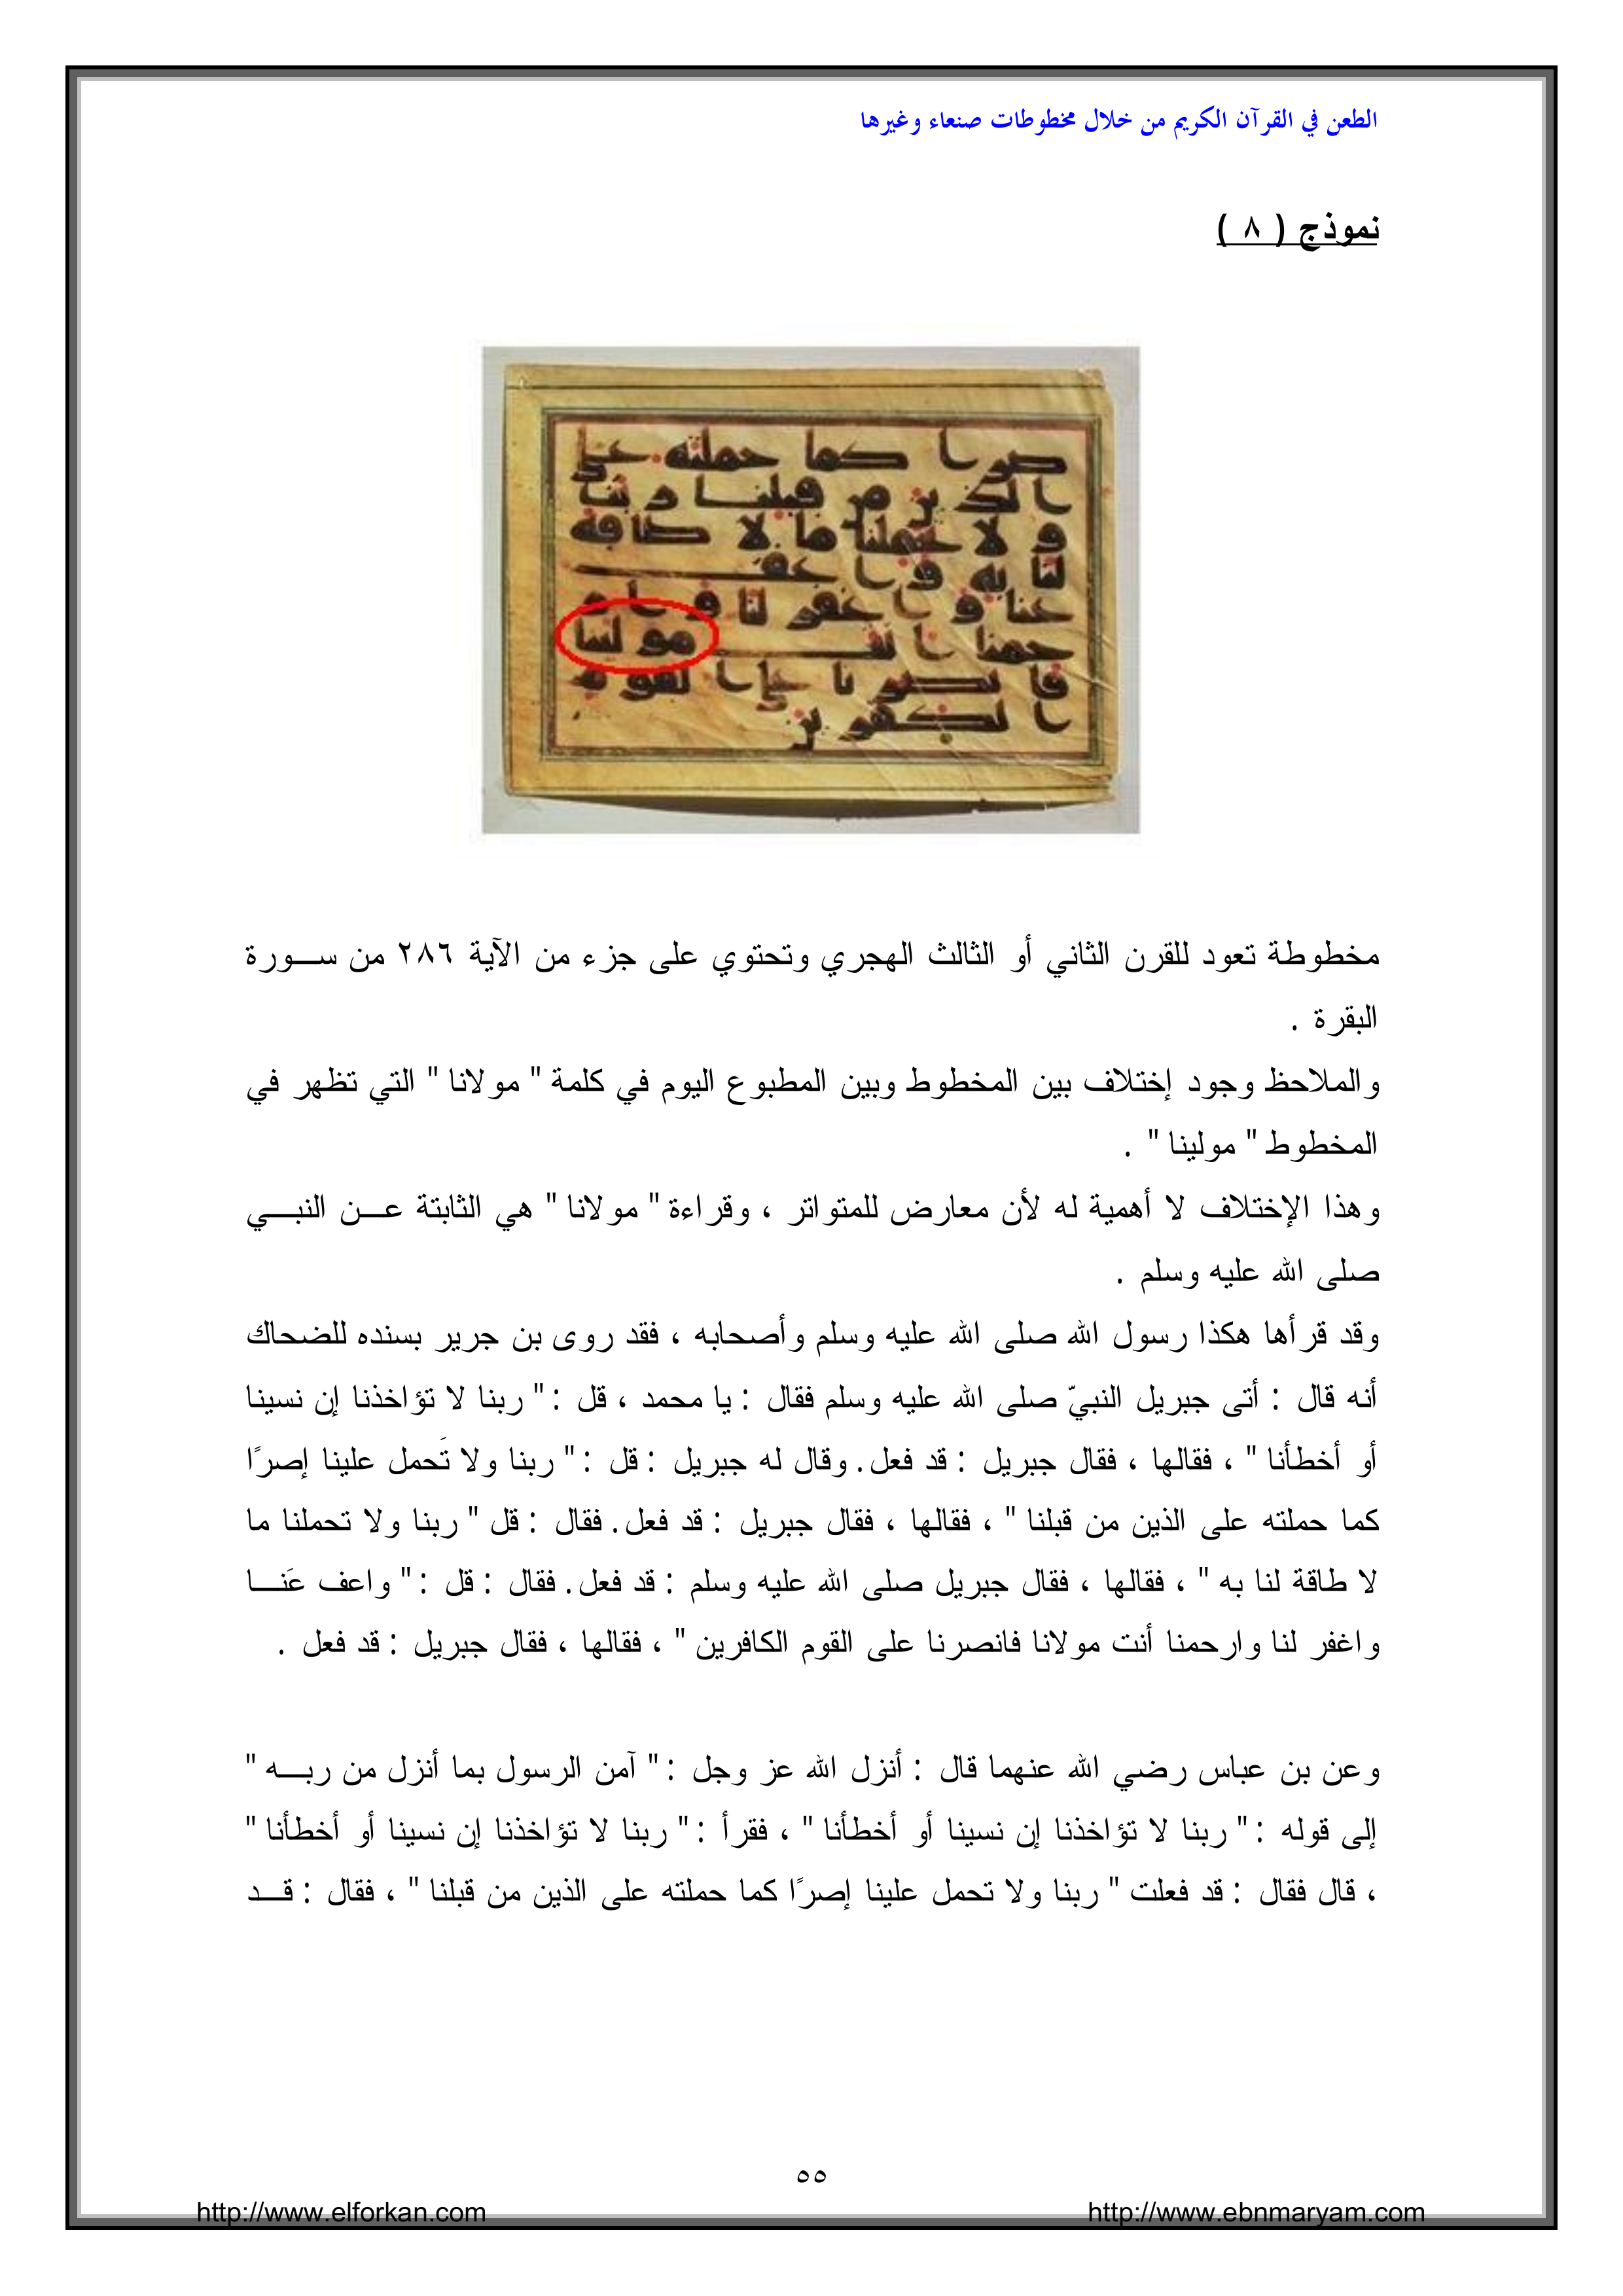 الطعن في القرآن الكريم من خلال مخطوطات صنعاء وغيرها
نموذج ( ٨ )
صرا كما حملته على
الذين من قبلنا ربنا
و لا تحملنا ما لا طاقة
لنا به و اعف
عنا و اغفر لنا و ار
حمنا انت مولينا
فانصرنا على القوم
الكفرين
مخطوطة تعود للقرن الثاني أو الثالث الهجري وتحتوي على جزء من الآية ٢٨٦ من ســورة
البقرة .
والملاحظ وجود إختلاف بين المخطوط وبين المطبوع اليوم في كلمة " مولانا " التي تظهر في
المخطوط " مولينا " .
وهذا الإختلاف لا أهمية له لأن معارض للمتواتر ، وقراءة " مولانا " هي الثابتة عــن النبــي
صلى الله عليه وسلم .
وقد قرأها هكذا رسول الله صلى الله عليه وسلم وأصحابه ، فقد روى بن جرير بسنده للضحاك
أنه قال : أتى جبريل النبيّ صلى الله عليه وسلم فقال : يا محمد ، قل : " ربنا لا تؤاخذنا إن نسينا
أو أخطأنا " ، فقالها ، فقال جبريل : قد فعل. وقال له جبريل : قل : " ربنا ولا تَحمل علينا إصرًا
كما حملته على الذين من قبلنا " ، فقالها ، فقال جبريل : قد فعل. فقال : قل " ربنا ولا تحملنا ما
لا طاقة لنا به " ، فقالها ، فقال جبريل صلى الله عليه وسلم : قد فعل. فقال : قل : " واعف عَنــا
واغفر لنا وارحمنا أنت مولانا فانصرنا على القوم الكافرين " ، فقالها ، فقال جبريل : قد فعل .
وعن بن عباس رضي الله عنهما قال : أنزل الله عز وجل : " آمن الرسول بما أنزل من ربــه "
إلى قوله : " ربنا لا تؤاخذنا إن نسينا أو أخطأنا " ، فقرأ : " ربنا لا تؤاخذنا إن نسينا أو أخطأنا "
، قال فقال : قد فعلت " ربنا ولا تحمل علينا إصرًا كما حملته على الذين من قبلنا " ، فقال : قــد
٥٥
http://www.elforkan.com http://www.ebnmaryam.com